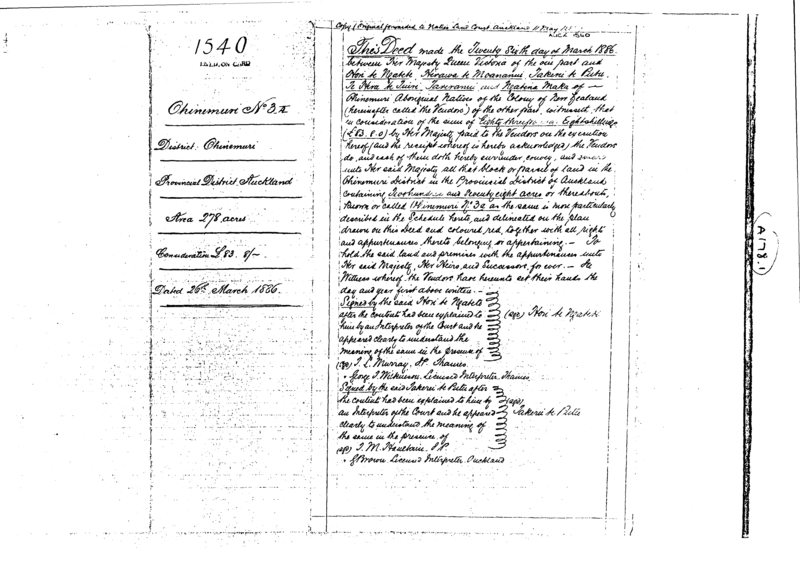 1540
Ohinemuri No 3A
District: Ohinemuri
Provincial District, Auckland
Area 278 acres
Consideration £83. 8/-
Dated 26th March 1886.
Copy (Original forwarded to Native Land Court Auckland 11 May
This Deed made the Twenty Sixth day of March 1886
between Her Majesty Queen Victoria of the one part and
Hori te Ngatete, Hirawa te Moananui, Takerei te Putu,
of —
Ohinemuri Aboriginal Natives of the Colony of New Zealand
(hereinafter called "the Vendors") of the other part, witnesseth, that
in consideration of the sum of Eighty three pounds Eight shillings
(£83.8.0) by Her Majesty paid to the Vendors on the execution
hereof (and the receipt whereof is hereby acknowledged) the Vendors
do, and each of them doth hereby surrender, convey, and
unto Her said Majesty all that block or parcel of land in the
Ohinemuri District in the Provincial District of Auckland
containing Two hundred and seventy eight acres or thereabouts,
known or called Ohinemuri No 3a as the same is more particularly
described in the Schedule hereto, and delineated on the plan
drawn on this Deed and coloured red, together with all rights
and appurtenances thereto belonging or appertaining. — To
hold the said land and premises with the appurtenances unto
Her said Majesty, Her Heirs, and Successors, for ever. — In
Witness whereof the Vendors have hereunto set their hands the
day and year first above written. —
Signed by the said Hori te Ngatete
after the contents had been explained to
him by an Interpreter of the Court and he
appeared clearly to understand the
meaning of the same in the presence of
(sgd) Hori te Ngatete
(sgd) J. L. Murray, JP Thames
" George T. Wilkinson. Licensed Interpreter. Thames.
Signed by the said Takerei te Putu after
the contents had been explained to him by
an Interpreter of the Court and he appeared
clearly to understand the meaning of
the same in the presence of
(sgd) Takerei te Putu
(sgd)
" G Brown. Licensed Interpreter. Auckland
A178.1